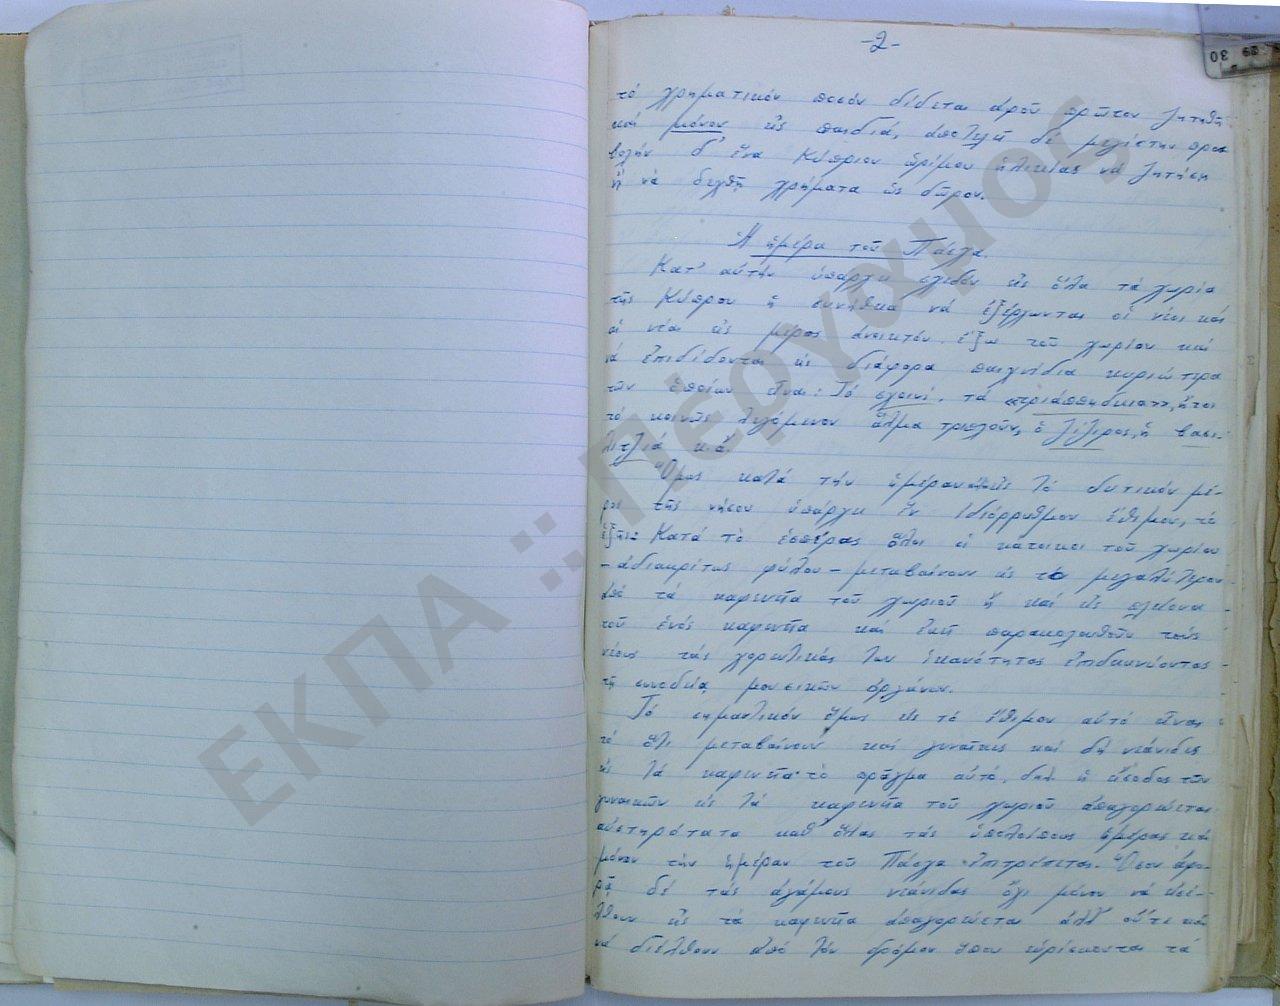 -2-
τό χρηματικόν ποσόν δίδεται ἀφοῦ πρῶτον ζητηθῇ
καί μόνον εἰς παιδιά, ἀποτελεῖ δέ μεγίστην προσ
βολήν δι' ἕνα Κύπριον ὡρίμου ἡλικίας νά ζητήσῃ
ἤ νά δεχθῇ χρήματα ὡς δῶρον.
Ἡ ἡμέρα τοῦ Πάσχα.
Κατ' αὐτήν ὑπάρχει σχεδόν εἰς ὅλα τά χωρία
τῆς Κύπρου ἡ συνήθεια νά ἐξέρχωνται οἱ νέοι καί
αἱ νέαι εἰς μέρος ἀνοικτόν, ἔξω τοῦ χωρίου καί
νά ἐπιδίδονται εἰς διάφορα παιγνίδια κυριώτερα
τῶν ὁποίων εἶναι: Τό σχοινί, τά «τριάππηδκια», ἤτοι
τό κοινῶς λεγόμενον ἅλμα τριπλοῦν, ὁ ζίζυρος, ἡ βασι-
λιτζιά κ.ἄ.
Ὅμως κατά τήν ἡμέραν εἰς τό δυτικόν μέ-
ρος τῆς νήσου ὑπάρχει ἕν ἰδιόρρυθμον ἔθιμον, τό
ἑξῆς: Κατά τό ἑσπέρας ὅλοι οἱ κάτοικοι τοῦ χωρίου
-ἀδιακρίτως φύλου- μεταβαίνουν εἰς τό μεγαλύτερον
ἀπό τά καφενεῖα τοῦ χωριοῦ ἤ καί εἰς πλείονα
τοῦ ἑνός καφενεῖα καί ἐκεῖ παρακολουθοῦν τούς
νέους τάς χορευτικάς των ἱκανότητας ἐπιδεικνύοντας
τῇ συνοδείᾳ μουσικῶν ὀργάνων.
Τό σημαντικόν ὅμως εἰς τό ἔθιμον αὐτό εἶναι
τό ὅτι μεταβαίνουν καί γυναῖκες καί δή νεάνιδες
εἰς τά καφενεῖα· τό πρᾶγμα αὐτό, δηλ. ἡ εἴσοδος τῶν
γυναικῶν εἰς τά καφενεῖα τοῦ χωριοῦ ἀπαγορεύεται
αὐστηρότατα καθ' ὅλας τάς ὑπολοίπους ἡμέρας καί
μόνον τήν ἡμέραν τοῦ Πάσχα ἐπιτρέπεται. Ὅσον ἀφο-
ρᾷ δέ τάς ἀγάμους νεάνιδας ὄχι μόνον νά εἰσέ-
λθουν εἰς τά καφενεῖα ἀπαγορεύεται ἀλλ' οὔτε καί
νά διέλθουν ἀπό τόν δρόμον ὅπου εὑρίσκονται τά
ΕΚΠΑ :: Πέργαμος
30